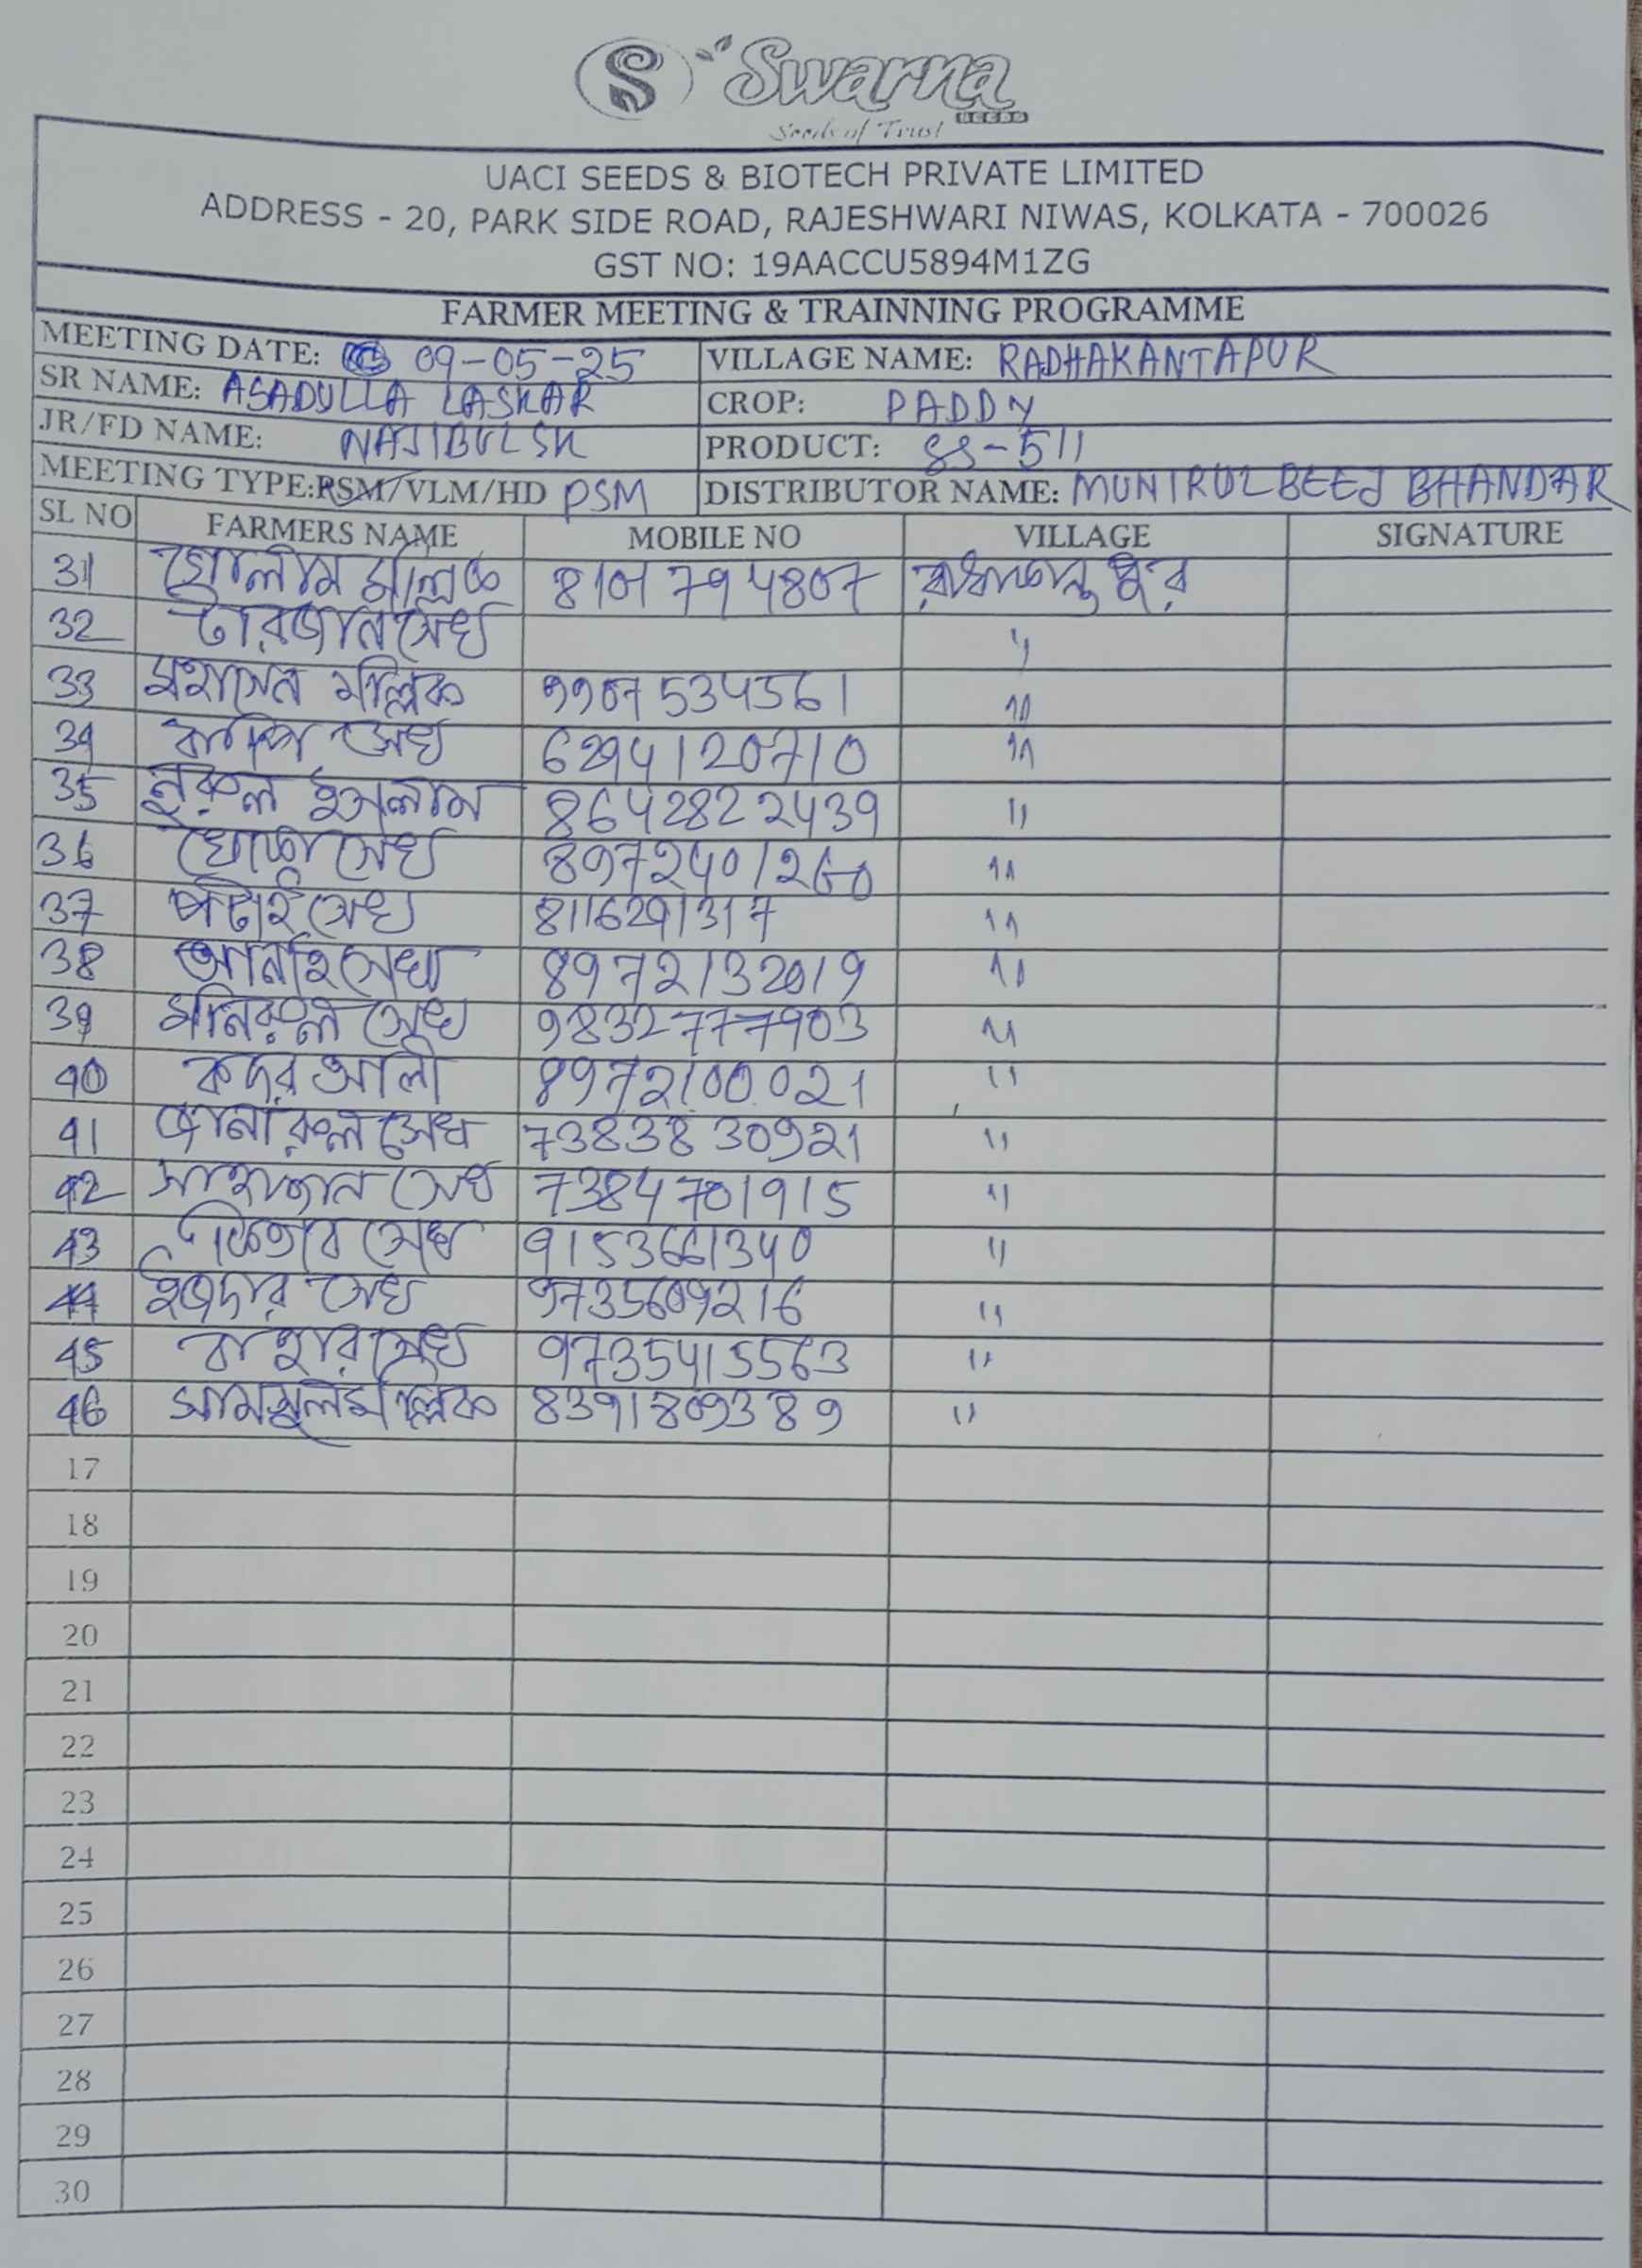 S Swarna
SEEDS
Seeds of Trust
UACI SEEDS & BIOTECH PRIVATE LIMITED
ADDRESS - 20, PARK SIDE ROAD, RAJESHWARI NIWAS, KOLKATA - 700026
GST NO: 19AACCU5894M1ZG
FARMER MEETING & TRAINNING PROGRAMME
MEETING DATE: 09-05-25 VILLAGE NAME: RADHAKANTAPUR
SR NAME: ASADULLA LASKAR CROP: PADDY
JR/FD NAME: NAJIBUL SK PRODUCT: SS-511
MEETING TYPE:PSM/VLM/HD PSM DISTRIBUTOR NAME: MUNIRUL BEEJ BHANDAR
SL NO FARMERS NAME MOBILE NO VILLAGE SIGNATURE
31 গোলাম মল্লিক 8101794807 রাধাকান্তপুর
32 সেখ "
33 মল্লিক 9907534561 "
34 সেখ 6294120710 "
35 নুরুল ইসলাম 8642822439 "
36 সেখ 8972401260 "
37 পটাই সেখ 8116291317 "
38 সেখ 8972132019 "
39 মনিরুল সেখ 9832777903 "
40 কদর আলী 8972100021 "
41 জানারুল সেখ 7383830921 "
42 সাহাজান সেখ 7384701915 "
43 সেখ 9153661340 "
44 ইজদার সেখ 9735609216 "
45 বাহার সেখ 9735415563 "
46 সামসুল মল্লিক 8391809389 "
17
18
19
20
21
22
23
24
25
26
27
28
29
30